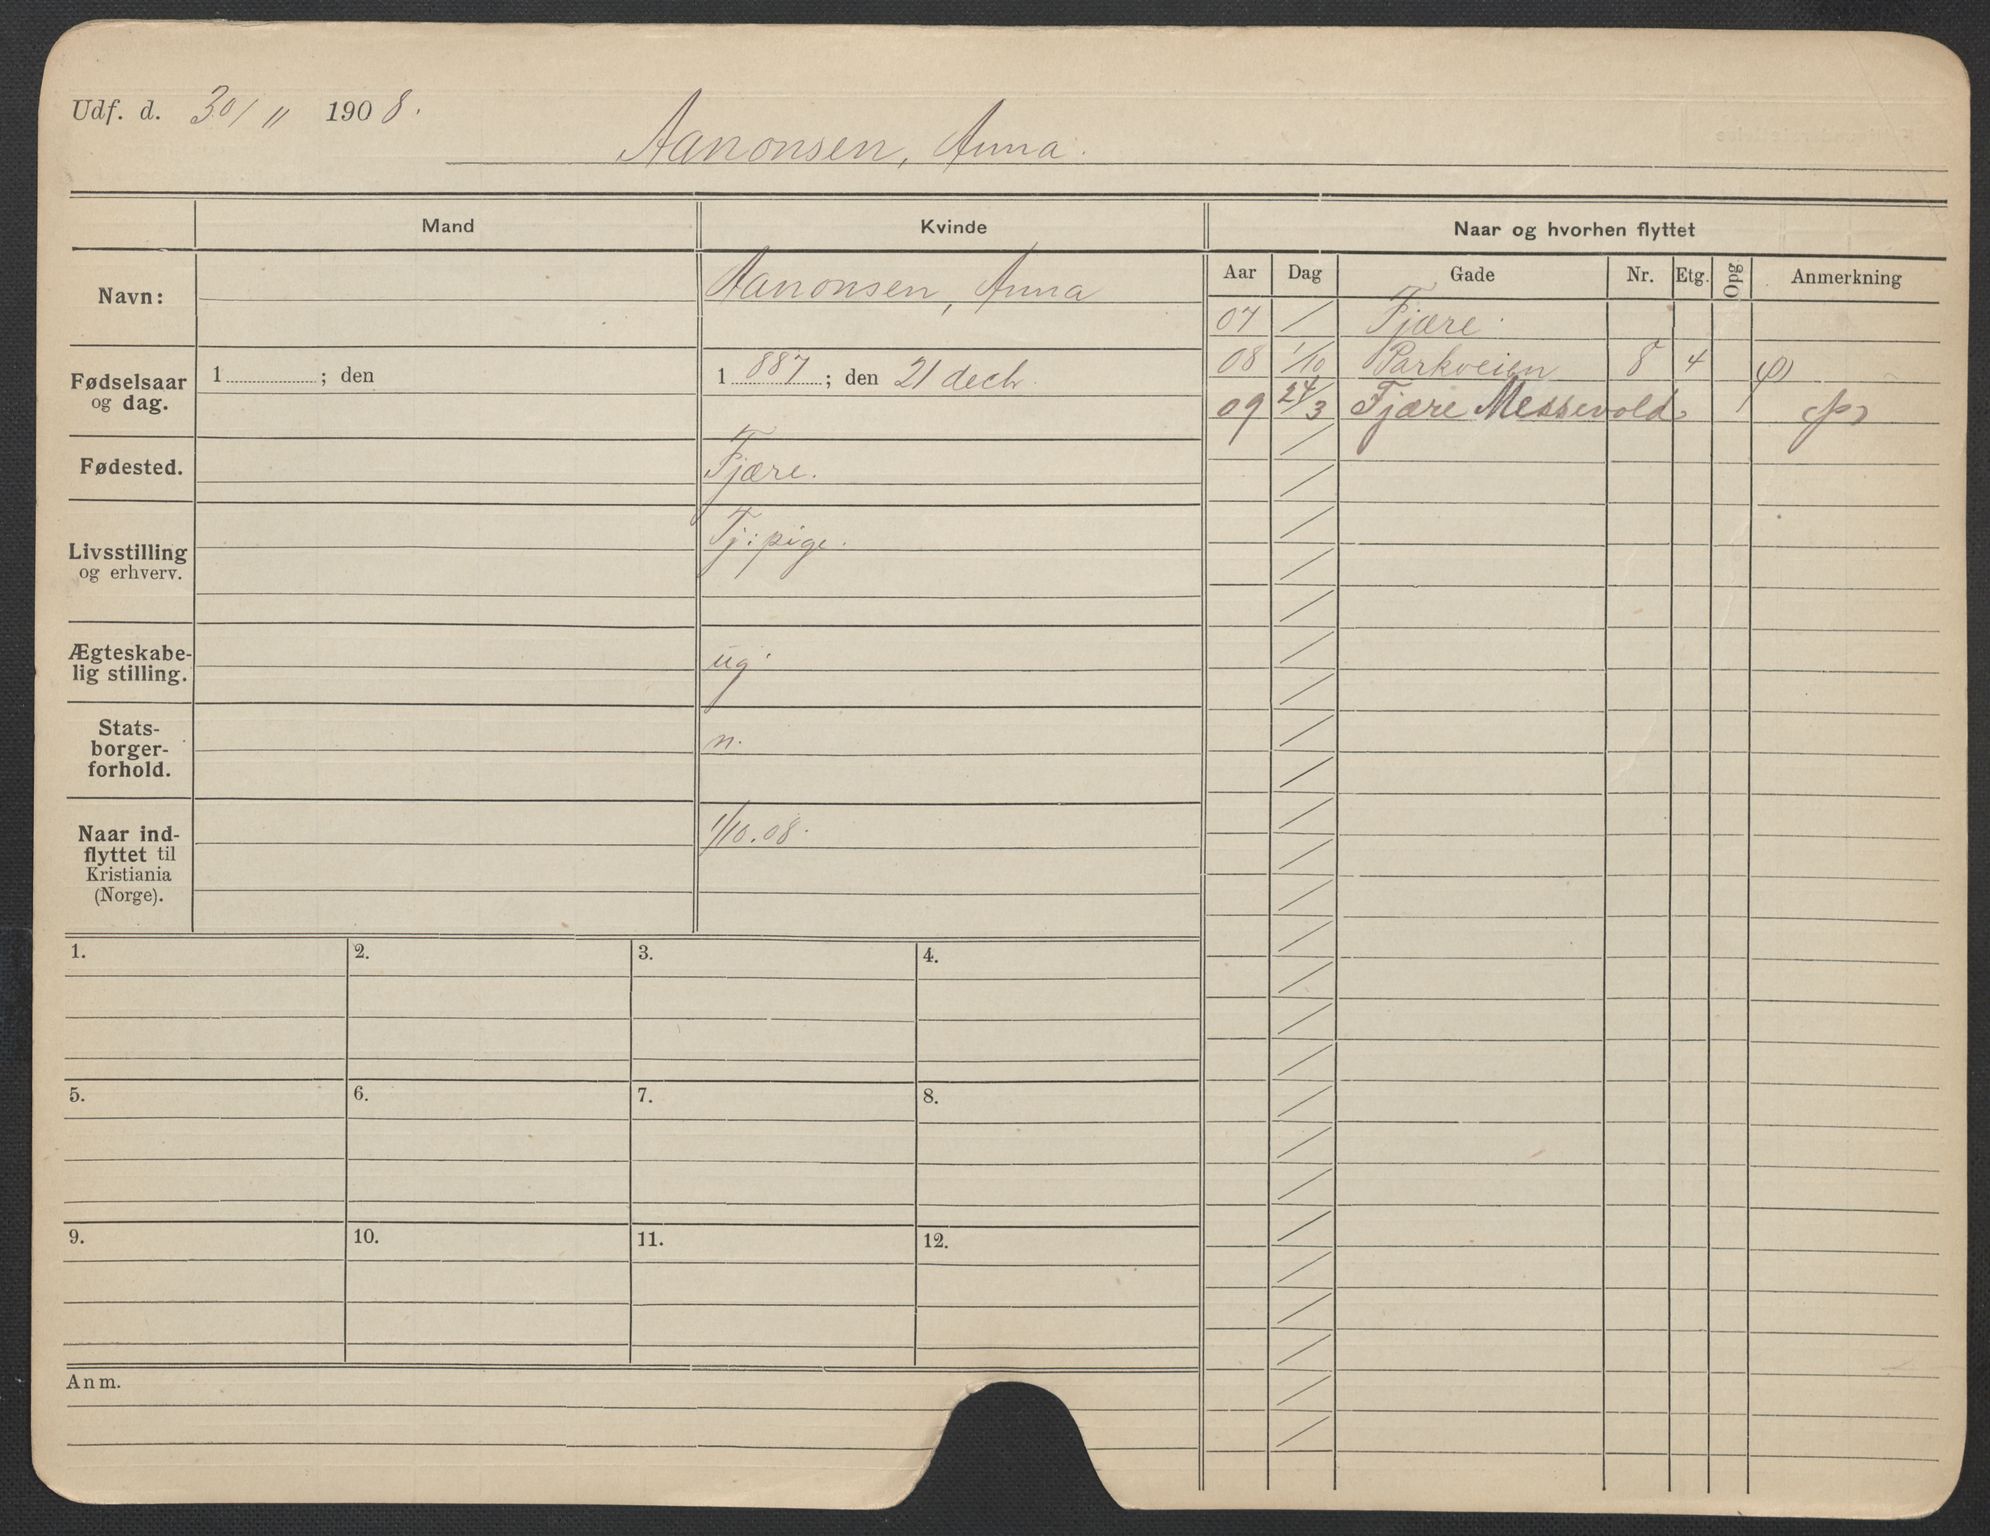 Udf. d. 30/11 1908.
Aanonsen, Anna.
Mand Kvinde Naar og hvorhen flyttet
Aar Dag Gade Nr. Etg. Opg Anmerkning
Navn: Aanonsen, Anna
07 / Fjære.
08 1/10 Parkveien 8 4
09 24/3 Fjære Messevold
Fødselsaar
og dag.
1 ; den
1887; den 21 decb.
Fødested. Fjære.
Livsstilling
og erhverv.
Tj: pige.
Ægteskabe-
lig stilling.
ug.
Stats-
borger-
forhold.
n.
Naar ind-
flyttet til
Kristiania
(Norge).
1/10.08.
1. 2. 3. 4.
5. 6. 7. 8.
9. 10. 11. 12.
Anm.